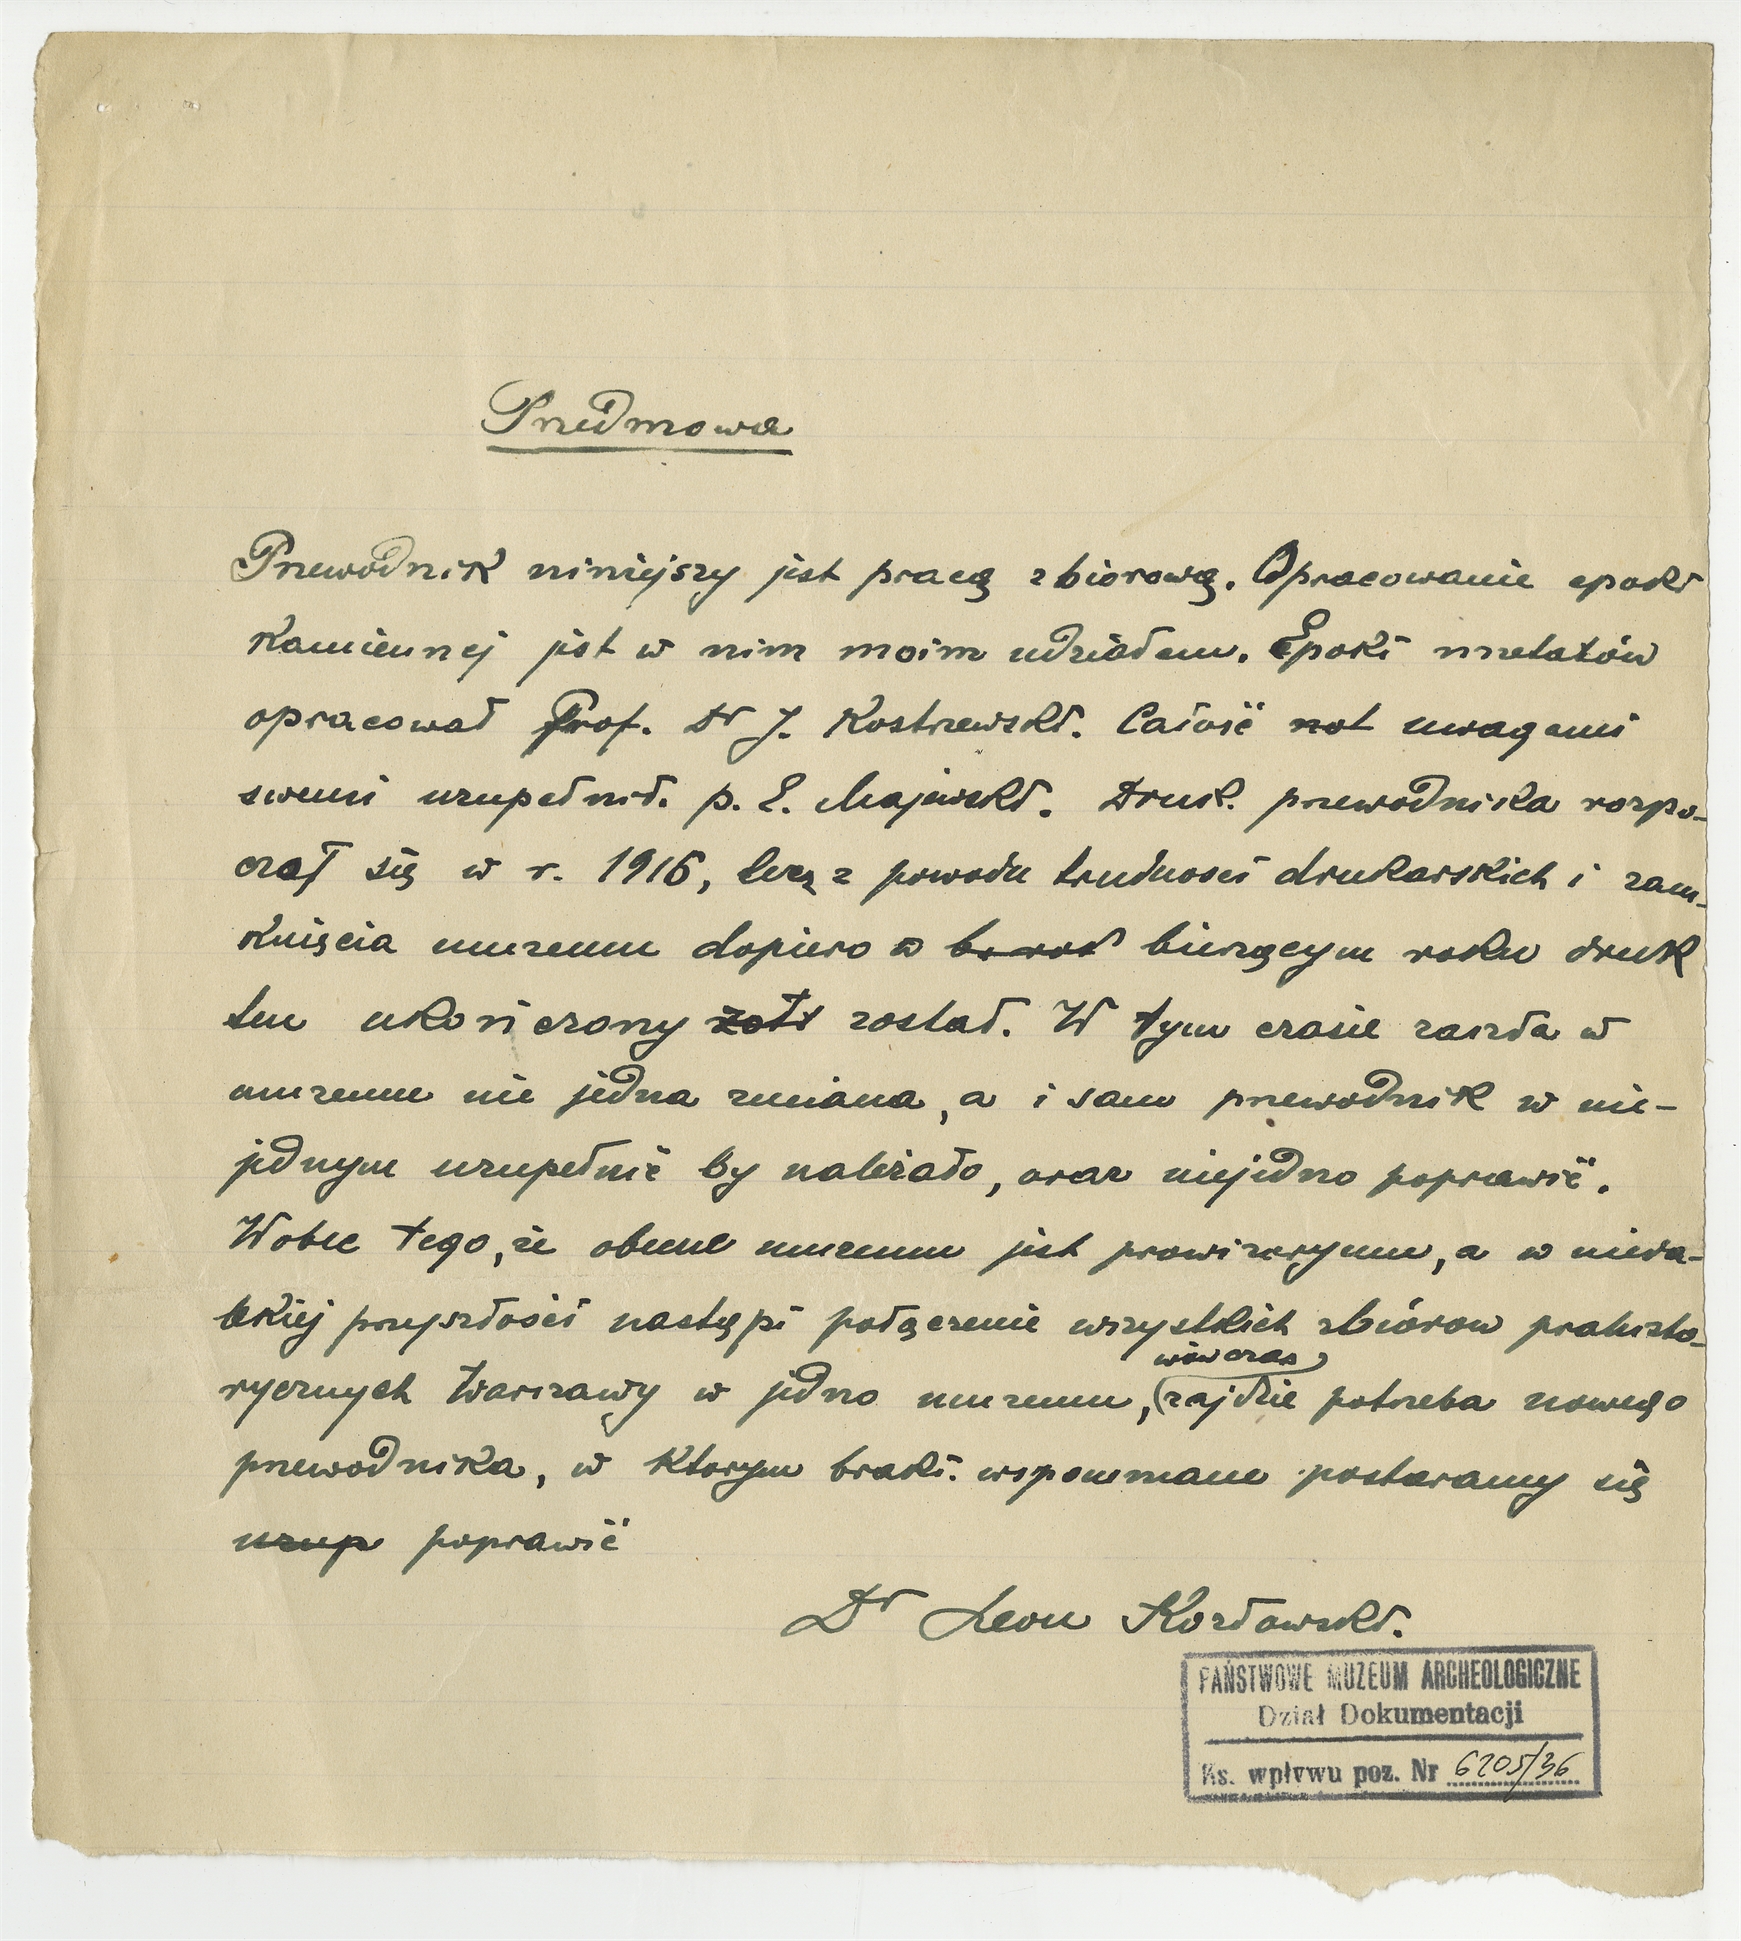 Przedmowa
Przewodnik niniejszy jest pracą zbiorową. Opracowanie epoki
Kamiennej jest w nim moim udziałem. Epoki metalów
opracował Prof. Dr J. Kostrzewski. Całość not uwagami
swemi uzupełnił. p. E. Majewski. Druk. przewodnika rozpo-
czął się w r. 1916, lecz z powodu trudności drukarskich i zam-
knięcia muzeum dopiero w bieżącym roku druk
ten ukończony został. W tym czasie zaszła w
muzeum nie jedna zmiana, a i sam przewodnik w nie-
jednym uzupełnić by należało, oraz niejedno poprawić.
Wobec tego, że obecne muzeum jest prowizoryum, a w nieda-
lekiej przyszłości nastąpi połączenie wszystkich zbiorow prahisto-
wówczas
rycznych Warszawy w jedno muzeum, zajdzie potrzeba nowego
przewodnika, w ktorym braki wspomniane postaramy się
uzup poprawić
Dr Leon Kozłowski.
PAŃSTWOWE MUZEUM ARCHEOLOGICZNE
Dział Dokumentacji
Ks. wpływu poz. Nr 6205/36